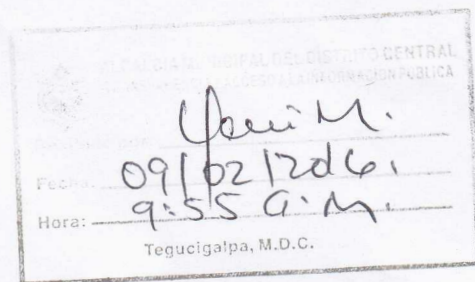 ALCALDIA MUNICIPAL DEL DISTRITO CENTRAL
TRANSPARENCIA Y ACCESO A LA INFORMACIÓN PÚBLICA
M.
Fecha: 09/02/2016.
Hora: 9:55 a.m.
Tegucigalpa, M.D.C.